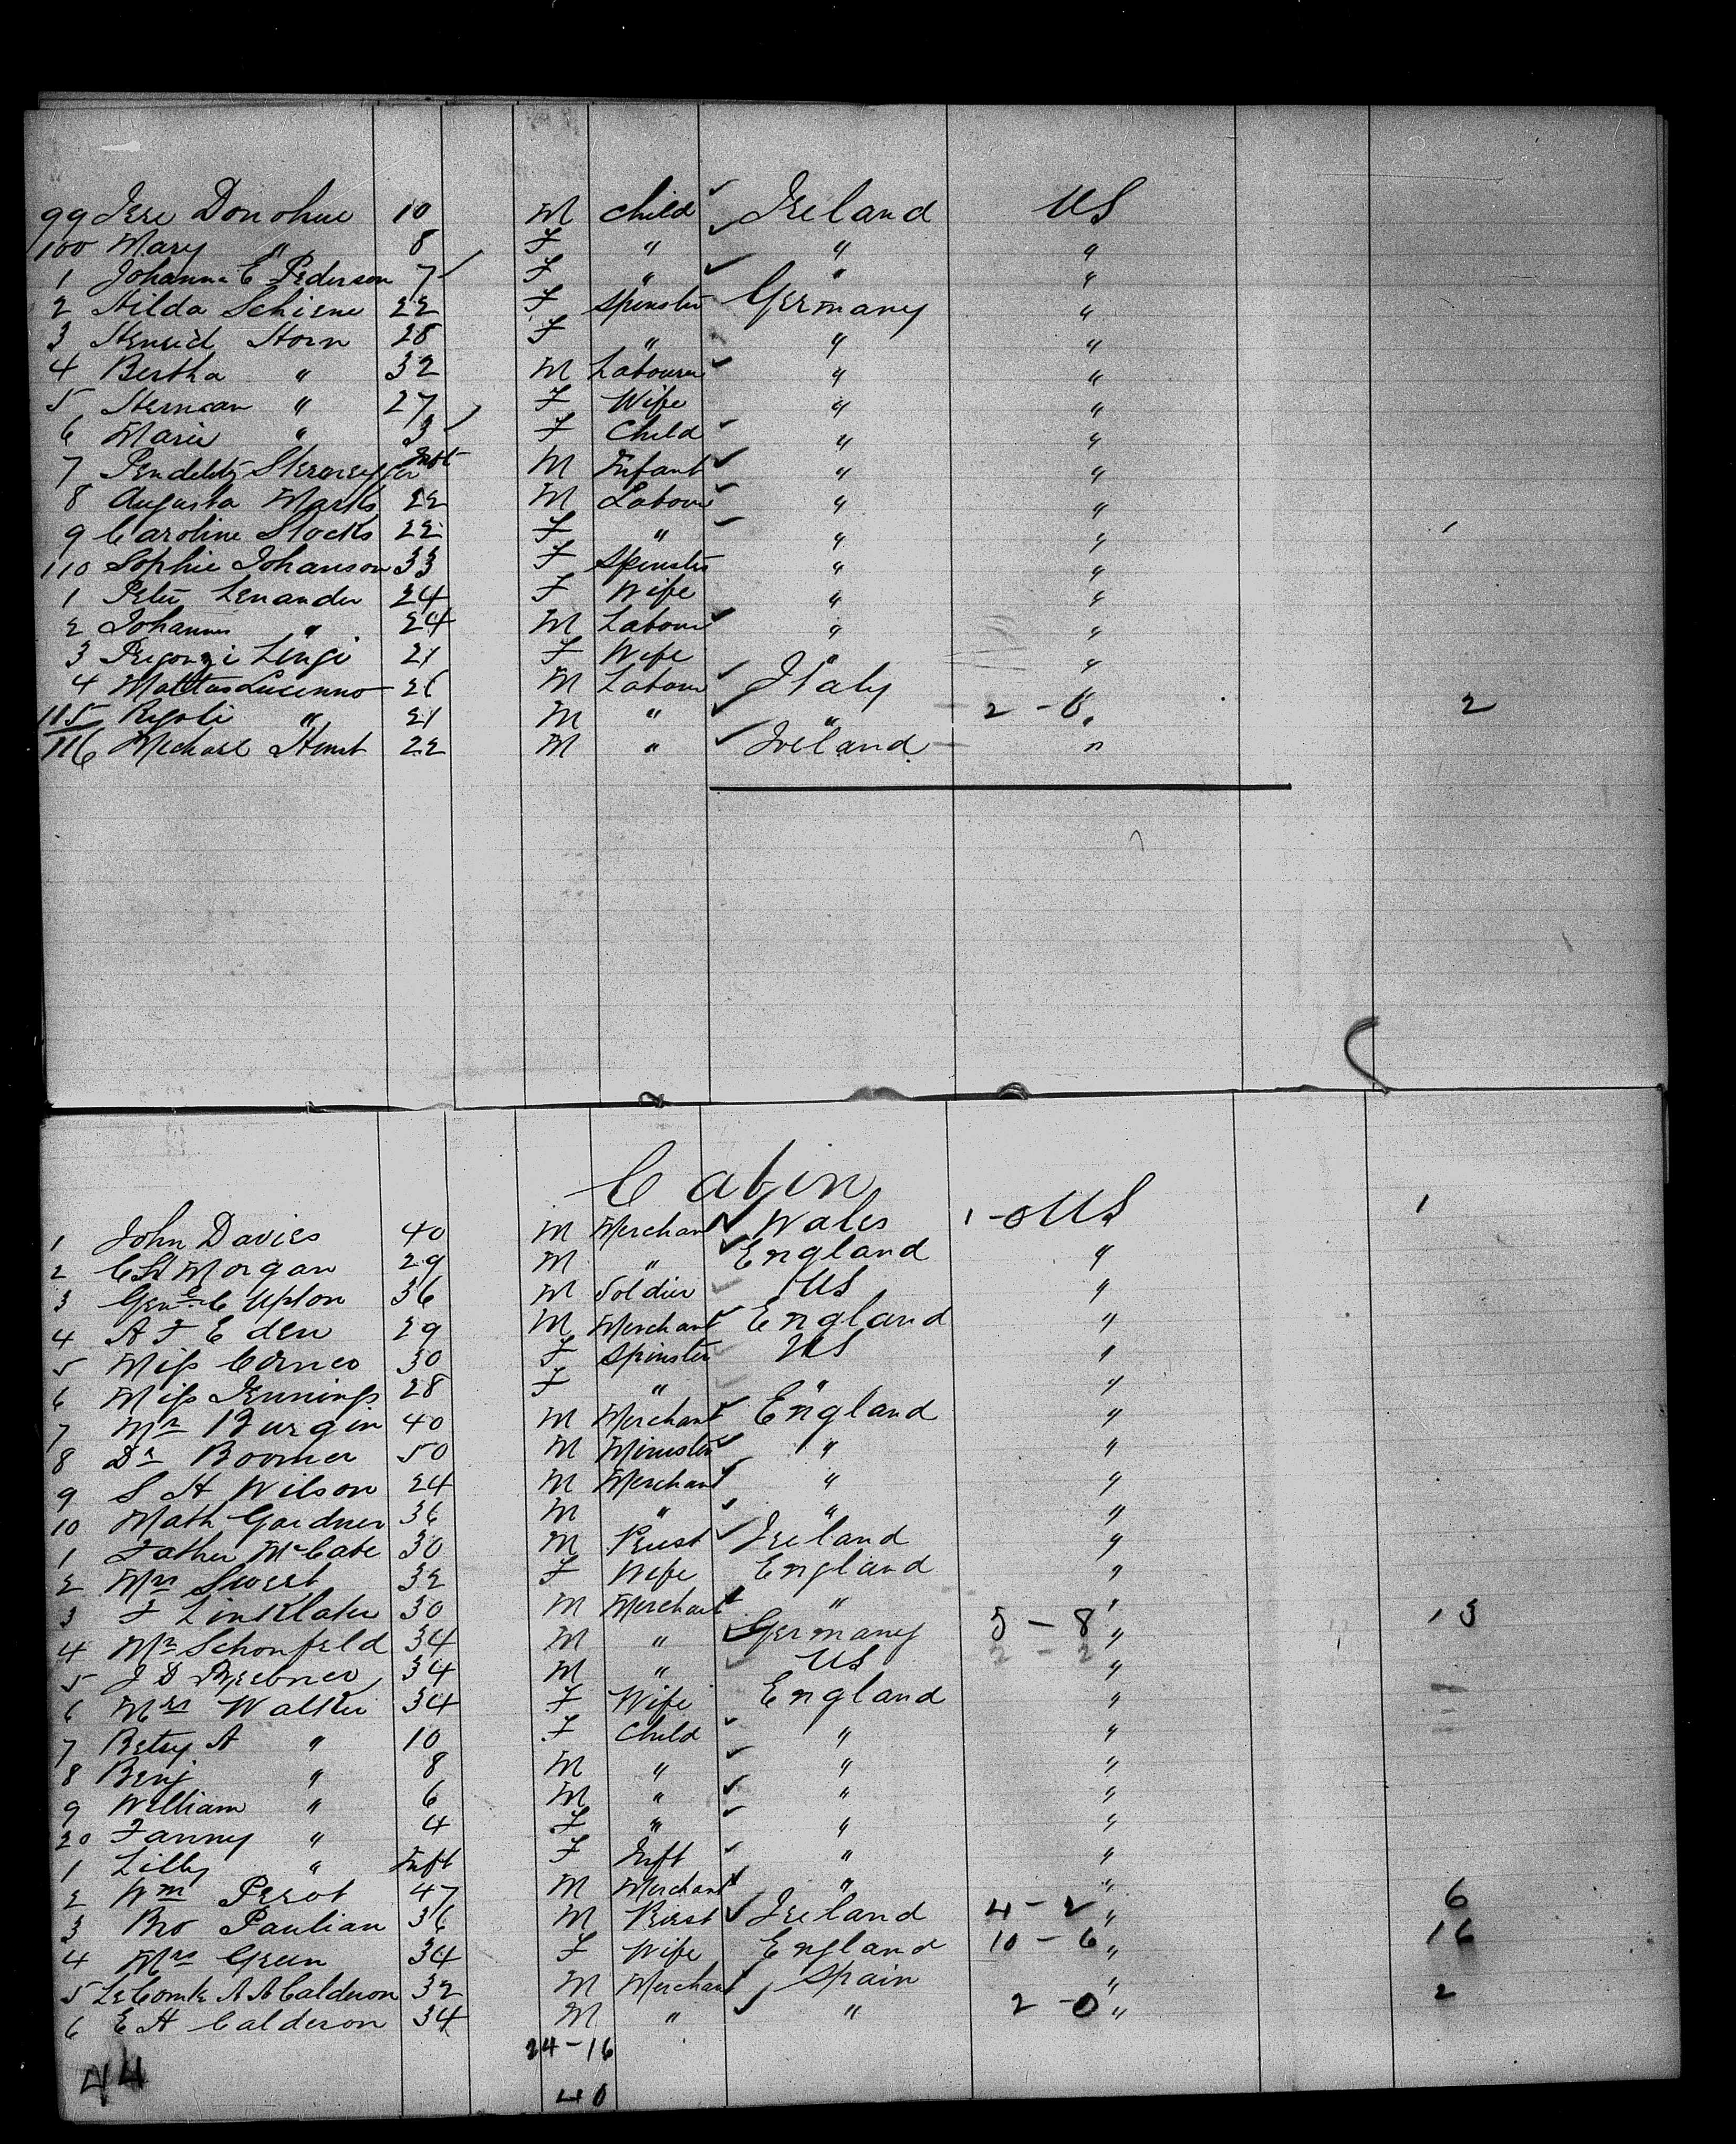 99 Jere Donohue 10 M Child Ireland US
100 Mary " 8 F " " "
1 Johanna E Pederson 7 F " " "
2 Hilda Schiene 22 F Spinster Germany "
3 Horn 28 F " " "
4 Bertha " 32 M Labourer " "
5 Herman " 27 F Wife " "
6 Marie " 3 F Child " "
7 Inft M Infant " "
8 Augusta Marks 22 M Labour " "
9 Caroline Stocks 22 F " " "
110 Sophie Johanson 33 F Spinster " "
1 Peter Lenander 24 F Wife " "
2 Johannes " 24 M Labour " "
3 Lengi 21 F Wife " "
4 Luicenno 26 M Labour Italy "
115 Rigoli " 21 M " " 2 - 0 " 2
116 Michael Hunt 22 M " Ireland "
Cabin
1 John Davies 40 M Merchant Wales 1 - 0 US 1
2 C H Morgan 29 M " England "
3 Genel E Upton 36 M Soldier US "
4 A F Eden 29 M Merchant England "
5 Miss 30 F Spinster US "
6 Miss Jennings 28 F " " "
7 Mr Burgin 40 M Merchant England "
8 Dr Boomer 50 M Minister " "
9 S H Wilson 24 M Merchant " "
10 Math Gardner 36 M " " "
1 Father McCabe 30 M Priest Ireland "
2 Mrs Sweet 32 F Wife England "
3 F Linklater 30 M Merchant " "
4 Mr Schonfeld 34 M " Germany 5 - 8 " 13
5 J D 34 M " US 2 - 2 "
6 Mrs Walker 34 F Wife England "
7 Betsy A " 10 F Child " "
8 Benj " 8 M " " "
9 William " 6 M " " "
20 Fanny " 4 F " " "
1 Lilly " Inft F Inft " "
2 Wm Perot 47 M Merchant " "
3 Bro Paulian 36 M Priest Ireland 4 - 2 " 6
4 Mrs Green 34 F Wife England 10 - 6 " 16
5 Le Comte A A Calderon 32 M Merchant Spain "
6 E H Calderon 34 M " " 2 - 0 " 2
24 - 16
44 40